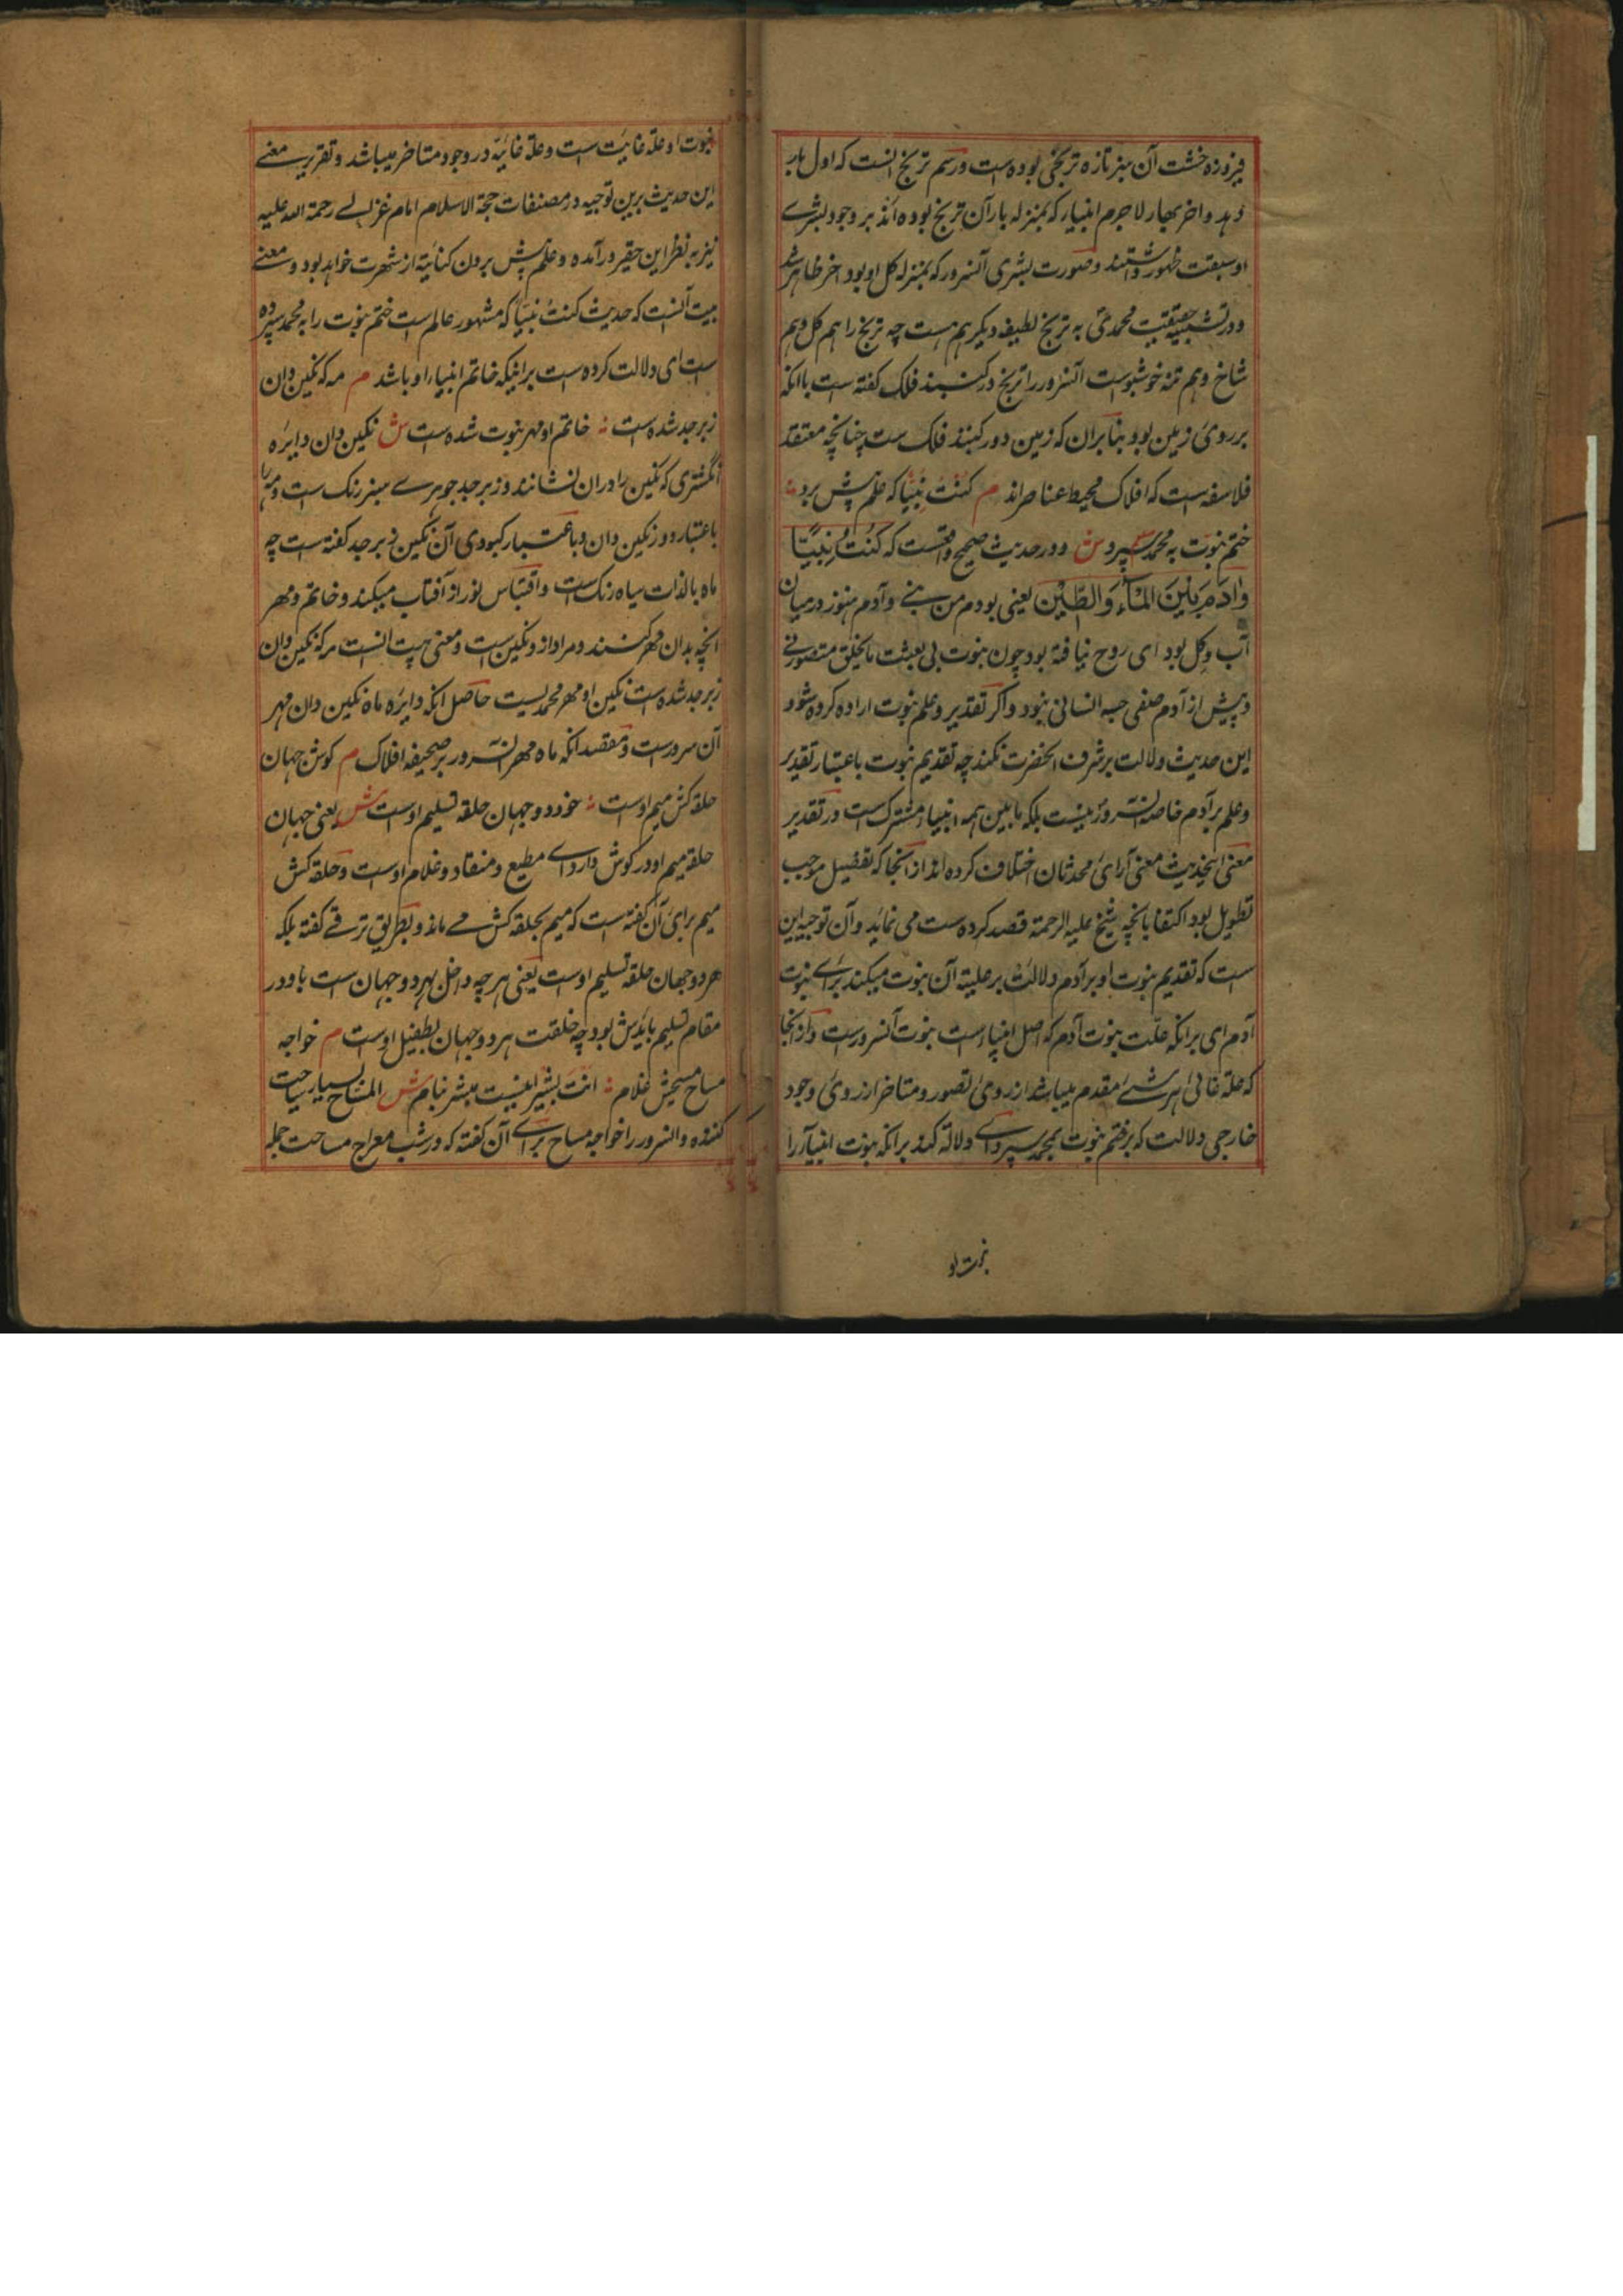 فیروزه خشت آن سبز تازه ترنجی بوده است و رسم ترنج انست که اول بار
دهد و اخر بهار لا جرم انبیاء که بمنزله بار آن ترنج بوده اند بر وجود بشری
او سبقت ظهور داشتند و صورت بشری آنسرور که بمنزله کل او بود اخر ظاهر شد
و در تشبیه حقیقت محمدی به ترنج لطیفه دیکر هم هست چه ترنج را هم کل و هم
شاخ و هم تنه خوشبوست آنسرور را ترنج در کنبند فلک کفته است با انکه
بر روی زمین بود بنا بران که زمین دور کنبند فلک ست چنانچه معتقد
فلاسفه است که افلاک محیط عناصر اند م کُنْتُ نَبِیّاً که علم پیش برد
ختم نبوّت به محمد سپرد ش و در حدیث صحیح واقعست که کُنْتُ نَبِیًّا
وَاٰدَمَ بَیْنَ الْمَآءِ وَالطِّیْن یعنی بودم من نبی و آدم هنوز در میان
آب و کل بود ای روح نیافته بود چون نبوت بی بعثت ما بخلق متصور نی
و پیش از آدم صفی جسد انسانی نبود و اکر تقدیر و علم نبوت اراده کرده شود
این حدیث دلالت بر شرف انحضرت نکند چه تقدیم نبوت باعتبار تقدیر
و علم بر آدم خاصه آنسرور نیست بلکه ما بین همه انبیاء مشترک است و در تقدیر
معنی اینحدیث معنی آرای محدثان اختلاف کرده اند از انجا که تفصیل موجب
تطویل بود اکتفا بانچه شیخ علیه الرحمة قصد کرده ست می نماید و آن توجیه این
ست که تقدیم نبوت او بر آدم دلالت بر علیة آن نبوت میکند برای نبوت
آدم ای بر انکه علّت نبوت آدم که اصل انبیاء ست نبوت آنسرور ست و از انجا
که علة غائی هر شئ مقدم میباشد از روی تصور و متاخر از روی وجود
خارجی دلالت که بر ختم نبوت بمحمد سپرد ای دلالة کند بر انکه نبوت انبیا را
نبوت او
نبوت او علة غائیت ست و علة غائیة در وجود متاخر میباشد و تقریب معنے
این حدیث برین توجیه در مصنفات حجة الاسلام امام غزالے رحمة الله علیه
نیز به نظر این حقیر در آمده و علم پیش بردن کنایة از شهرت خواهد بود و معنے
بیت آنست که حدیث کنتُ نبیّاً که مشهور عالم است ختم نبوت را به محمد سپرده
است ای دلالت کرده ست بر اینکه خاتم انبیاء او باشد م مه که نکین دان
زبرجد شده است خاتم او مهر نبوت شده ست ش نکین دان دایره
انکشتری که نکین را در ان نشانند و زبرجد جوهرے سبز رنک ست و مه را
باعتبار دور نکین دان و باعتبار کبودی آن نکین زبرجد کفته ست چه
ماه بالذات سیاه رنک ست و اقتباس نور از آفتاب میکند و خاتم و مهر
انچه بدان مهر کنند و مراد ازو نکین ست و معنی بیت انست مه که نکین دان
زبرجد شده ست نکین او مهر محمدیست حاصل انکه دایره ماه نکین دان مهر
آن سرورست و مقصد انکه ماه مهر آنسرور بر صحیفه افلاک م کوش جهان
حلقه کش میم اوست خود دو جهان حلقه تسلیم اوست ش یعنی جهان
حلقه میم او در کوش دارد ای مطیع و منقاد و غلام اوست و حلقه کش
میم برای آن کفته ست که میم بحلقه کش مے ماند و بطریق ترقے کفته بلکه
هر دو جهان حلقه تسلیم اوست یعنی هر چه داخل بهر دو جهان ست با و در
مقام تسلیم بایدش بود چه خلقت هر دو جهان بطفیل اوست م خواجه
مساح مسیحش غلام انت بشیر اینست مبشر بنام ش المساح بسیار مساحت
کننده و السرور را خواجه مساح برای آن کفته که در شب معراج مساحت جمله